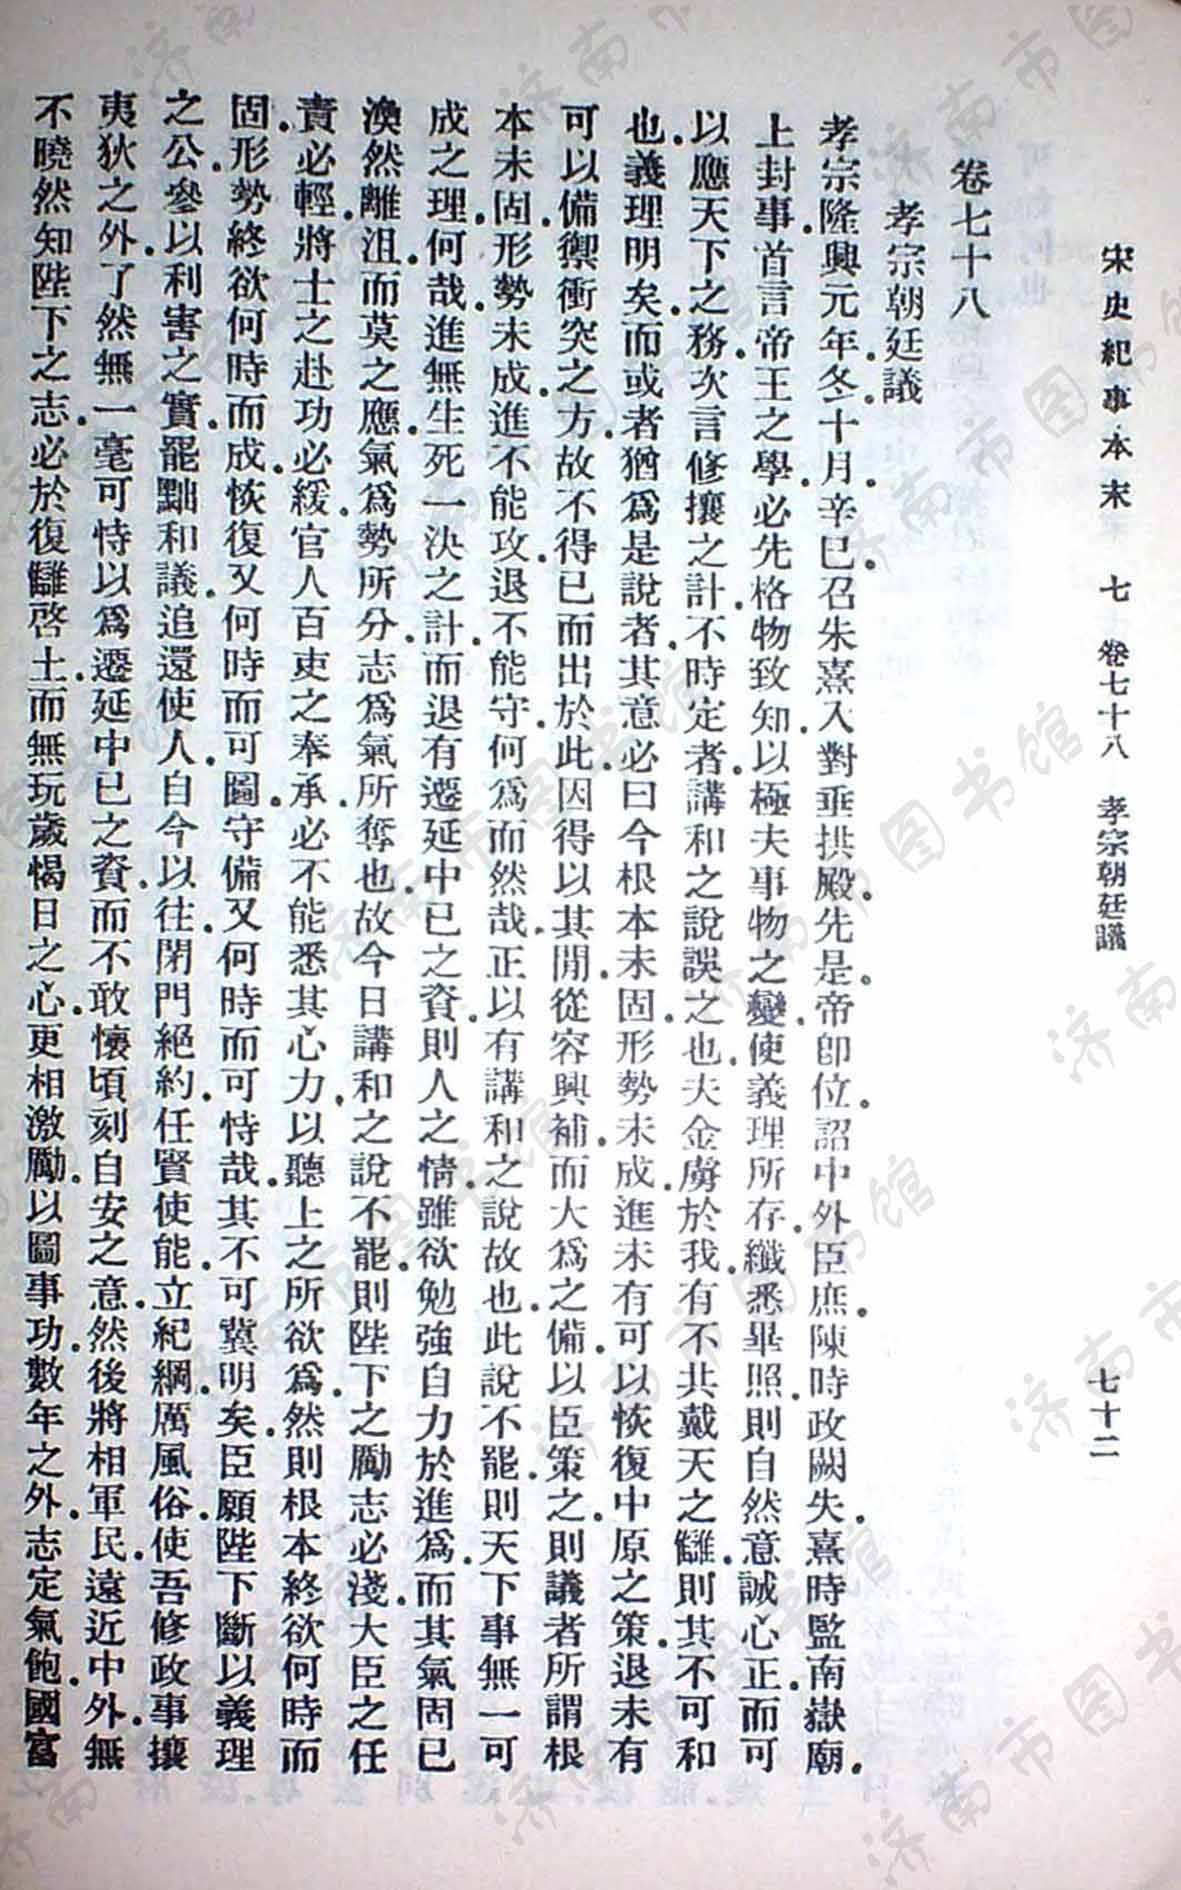 宋史紀事本末 七 卷七十八 孝宗朝廷議 七十二
卷七十八
孝宗朝廷議
孝宗隆興元年冬十月辛巳召朱熹入對垂拱殿先是帝卽位詔中外臣庶陳時政闕失熹時監南嶽廟
上封事首言帝王之學必先格物致知以極夫事物之變使義理所存纖悉畢照則自然意誠心正而可
以應天下之務次言修攘之計不時定者講和之說誤之也夫金虜於我有不共戴天之讎則其不可和
也義理明矣而或者猶爲是說者其意必曰今根本未固形勢未成進未有可以恢復中原之策退未有
可以備禦衝突之方故不得已而出於此因得以其閒從容興補而大爲之備以臣策之則議者所謂根
本未固形勢未成進不能攻退不能守何爲而然哉正以有講和之說故也此說不罷則天下事無一可
成之理何哉進無生死一決之計而退有遷延中已之資則人之情雖欲勉強自力於進爲而其氣固已
渙然離沮而莫之應氣爲勢所分志爲氣所奪也故今日講和之說不罷則陛下之勵志必淺大臣之任
責必輕將士之赴功必緩官人百吏之奉承必不能悉其心力以聽上之所欲爲然則根本終欲何時而
固形勢終欲何時而成恢復又何時而可圖守備又何時而可恃哉其不可冀明矣臣願陛下斷以義理
之公參以利害之實罷黜和議追還使人自今以往閉門絕約任賢使能立紀綱厲風俗使吾修政事攘
夷狄之外了然無一毫可恃以爲遷延中已之資而不敢懷頃刻自安之意然後將相軍民遠近中外無
不曉然知陛下之志必於復讎啓土而無玩歲愒日之心更相激勵以圖事功數年之外志定氣飽國富
济南市图书馆